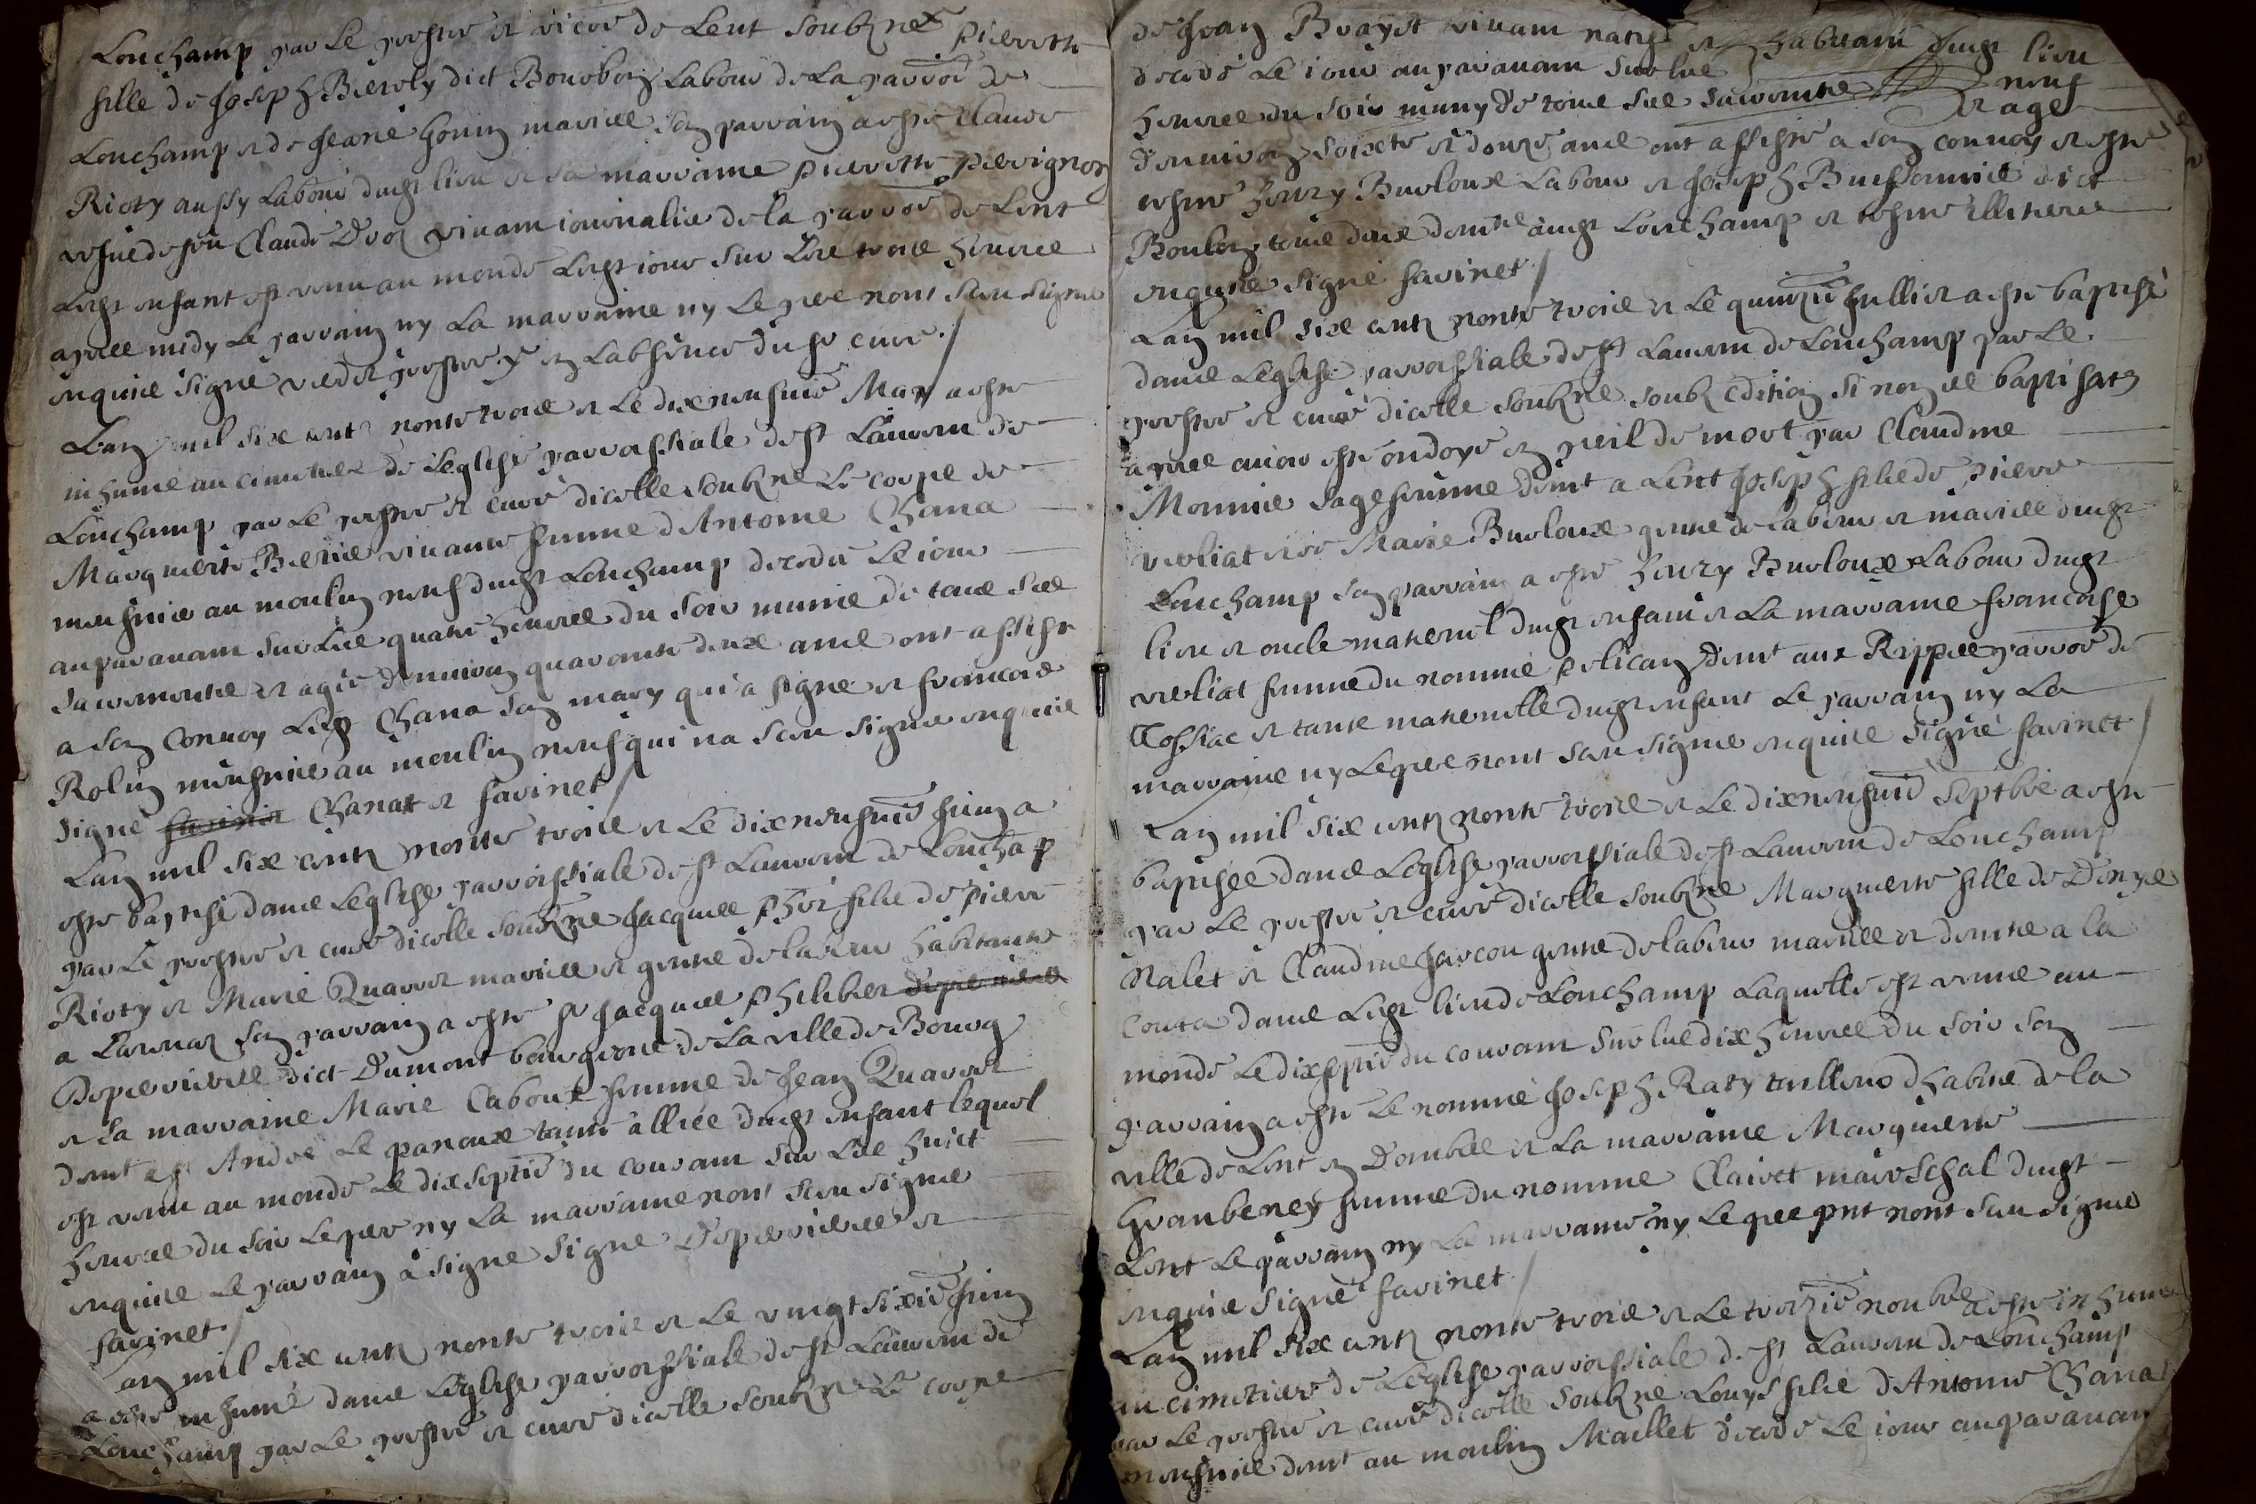 Lonchamp par le prestre et vicre de Lent soubzne Pierrette
fille de Joseph Bierely dict Bourbon labour de la parroe de
Lonchamp et de Jeane Gonin marriee son parrain a este Claude
Rioty aussy labour dugt lieu et sa marraine Pierrette Pierrignon
vefue de feu Claude Dron vivant iournalie de la parroe de Lent
Legt enfant est venu au monde Legt iour sur Les trois heures
apres midy Le parrain ny La marraine ny Le pere nont sceu signer
enquis signe prestre en Labsence du sr cure /
Lan mil six cent nonte trois et Le dixneufuie May a este
inhume au cimetiere de Leglise parroissiale de st Laurem de
Lonchamp par Le prestre et cure dicelle soubzne Le corps de
Marguerite vivante femme dAntoine Chana
meusnier au moulin neuf dugt Lonchamp decedee Le iour
auparauam sur Les quatre heures du soir munie de tous ses
sacremente et agee denuiron quarante deux ans ont assiste
a son conuoy Legt Chana son mary qui a signe et francois
Rolin meusnier au moulin neuf qui na sceu signer enquis
signe Chanat et favinet /
Lan mil six centz nonte trois et Le dixneufuie Juin a
este baptise dans Leglise parroissiale de st Laurem de Lonchap
par Le prestre et cure dicelle soubzne Jacques fils de Pierre
Rioty et Marie Quarret marriee et gente de labeur habitante
a son parrain a este sr Jacques Philiber
Depierviere dict Dumont bourgeois de La ville de Bourg
et sa marraine Marie Caboux femme de Jean Quarret
demt Andre Le panoux tante alliee dugt enfant lequel
est venu au monde Le dixseptie du couram sur Les huict
heures du soir Le pere ny La marraine nont sceu signer
enquis Le parrain a signe signe Depierviere et
favinet /
Lan mil six centz nonte trois et Le vingt sixie Juin
a este inhume dans Leglise parroissiale de st Laurem de
Lonchamp par Le prestre et cure dicelle soubzne Le corps
de Jean vivam et habitant dugt lieu
decede Le iour auparauam sur les neuf
heures du soir muny de tous ses sacremente et age
denuiron soixte et douze ans ont assiste a son conuoy et este
tesmo henry Burloux Labour et Joseph dict
Boulon tous deux demte augt Lonchamp et tesmo illiteres
enquis signe favinet /
Lan mil six centz nonte trois et Le quinzie Jullier a este baptise
dans Leglise parroissiale de st Laurem de Lonchamp par Le
prestre et cure dicelle soubzne soubz cdition si non es baptisatz
apres auoir este ondoye en peril de mort par Claudine
Monnie sagefemme demt a Lent Joseph fils de Pierre
verliat et de Marie Burloux gente de labeur et marriee dugt
Lonchamp son parrain a este henry Burloux Labour dugt
lieu et oncle maternel dugt enfant et La marraine francoise
verliat femme du nomme pelican demt aux Rippes parroe de
Cossiac et tante maternelle dugt enfant Le parrain ny La
marraine ny Le pere nont sceu signer enquis signe favinet /
Lan mil six centz nonte trois et Le dixneufuie septbre a este
baptisee dans Leglise parroissiale de st Laurem de Lonchamp
par Le prestre et cure dicelle soubzne Marguerite fille de Denys
Nalet et Claudine Jarcou gente de labeur marriee et demte a la
Couta dans Legt lieu de Lonchamp Laquelle est venue au
monde Le dixseptie du couram sur les dix heures du soir son
parrain a este Le nomme Joseph Raty tailleur dhabis de la
ville de Lent en Dombes et La marraine Marguerite
Granbeney femme du nomme Clairet mareschal dugt
Lent Le parrain ny La marraine ny Le pere pnt nont sceu signer
enquis signe favinet /
Lan mil six centz nonte trois et Le treizie noubre a este inhume
au cimetiere de Leglise parroissiale de st Laurem de Lonchamp
par Le prestre et cure dicelle soubzne Louys fils dAntoine Chanat
meusnier demt au moulin Maillet decede Le iour auparauan